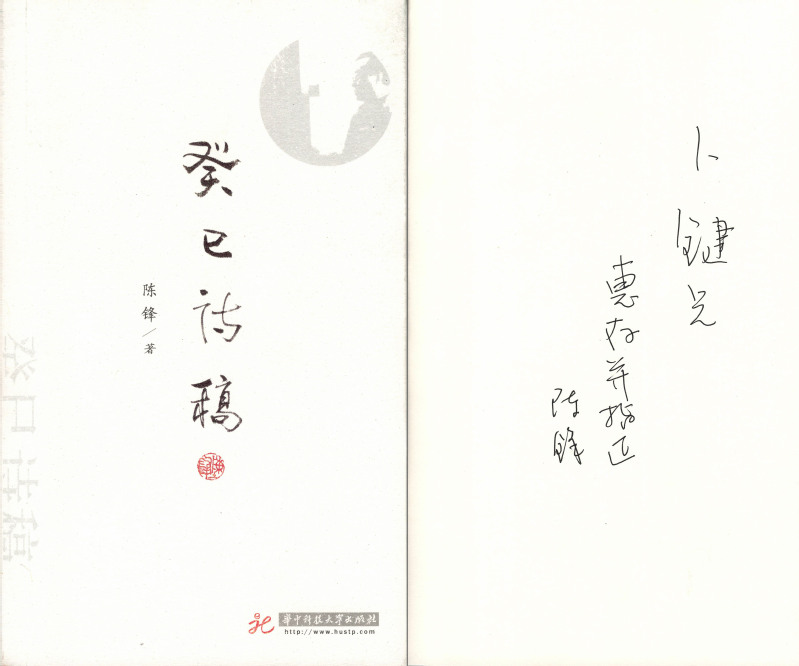 癸巳诗稿
陈锋／著
华中科技大学出版社
http://www.hustp.com
卜键兄
惠存并指正
陈锋